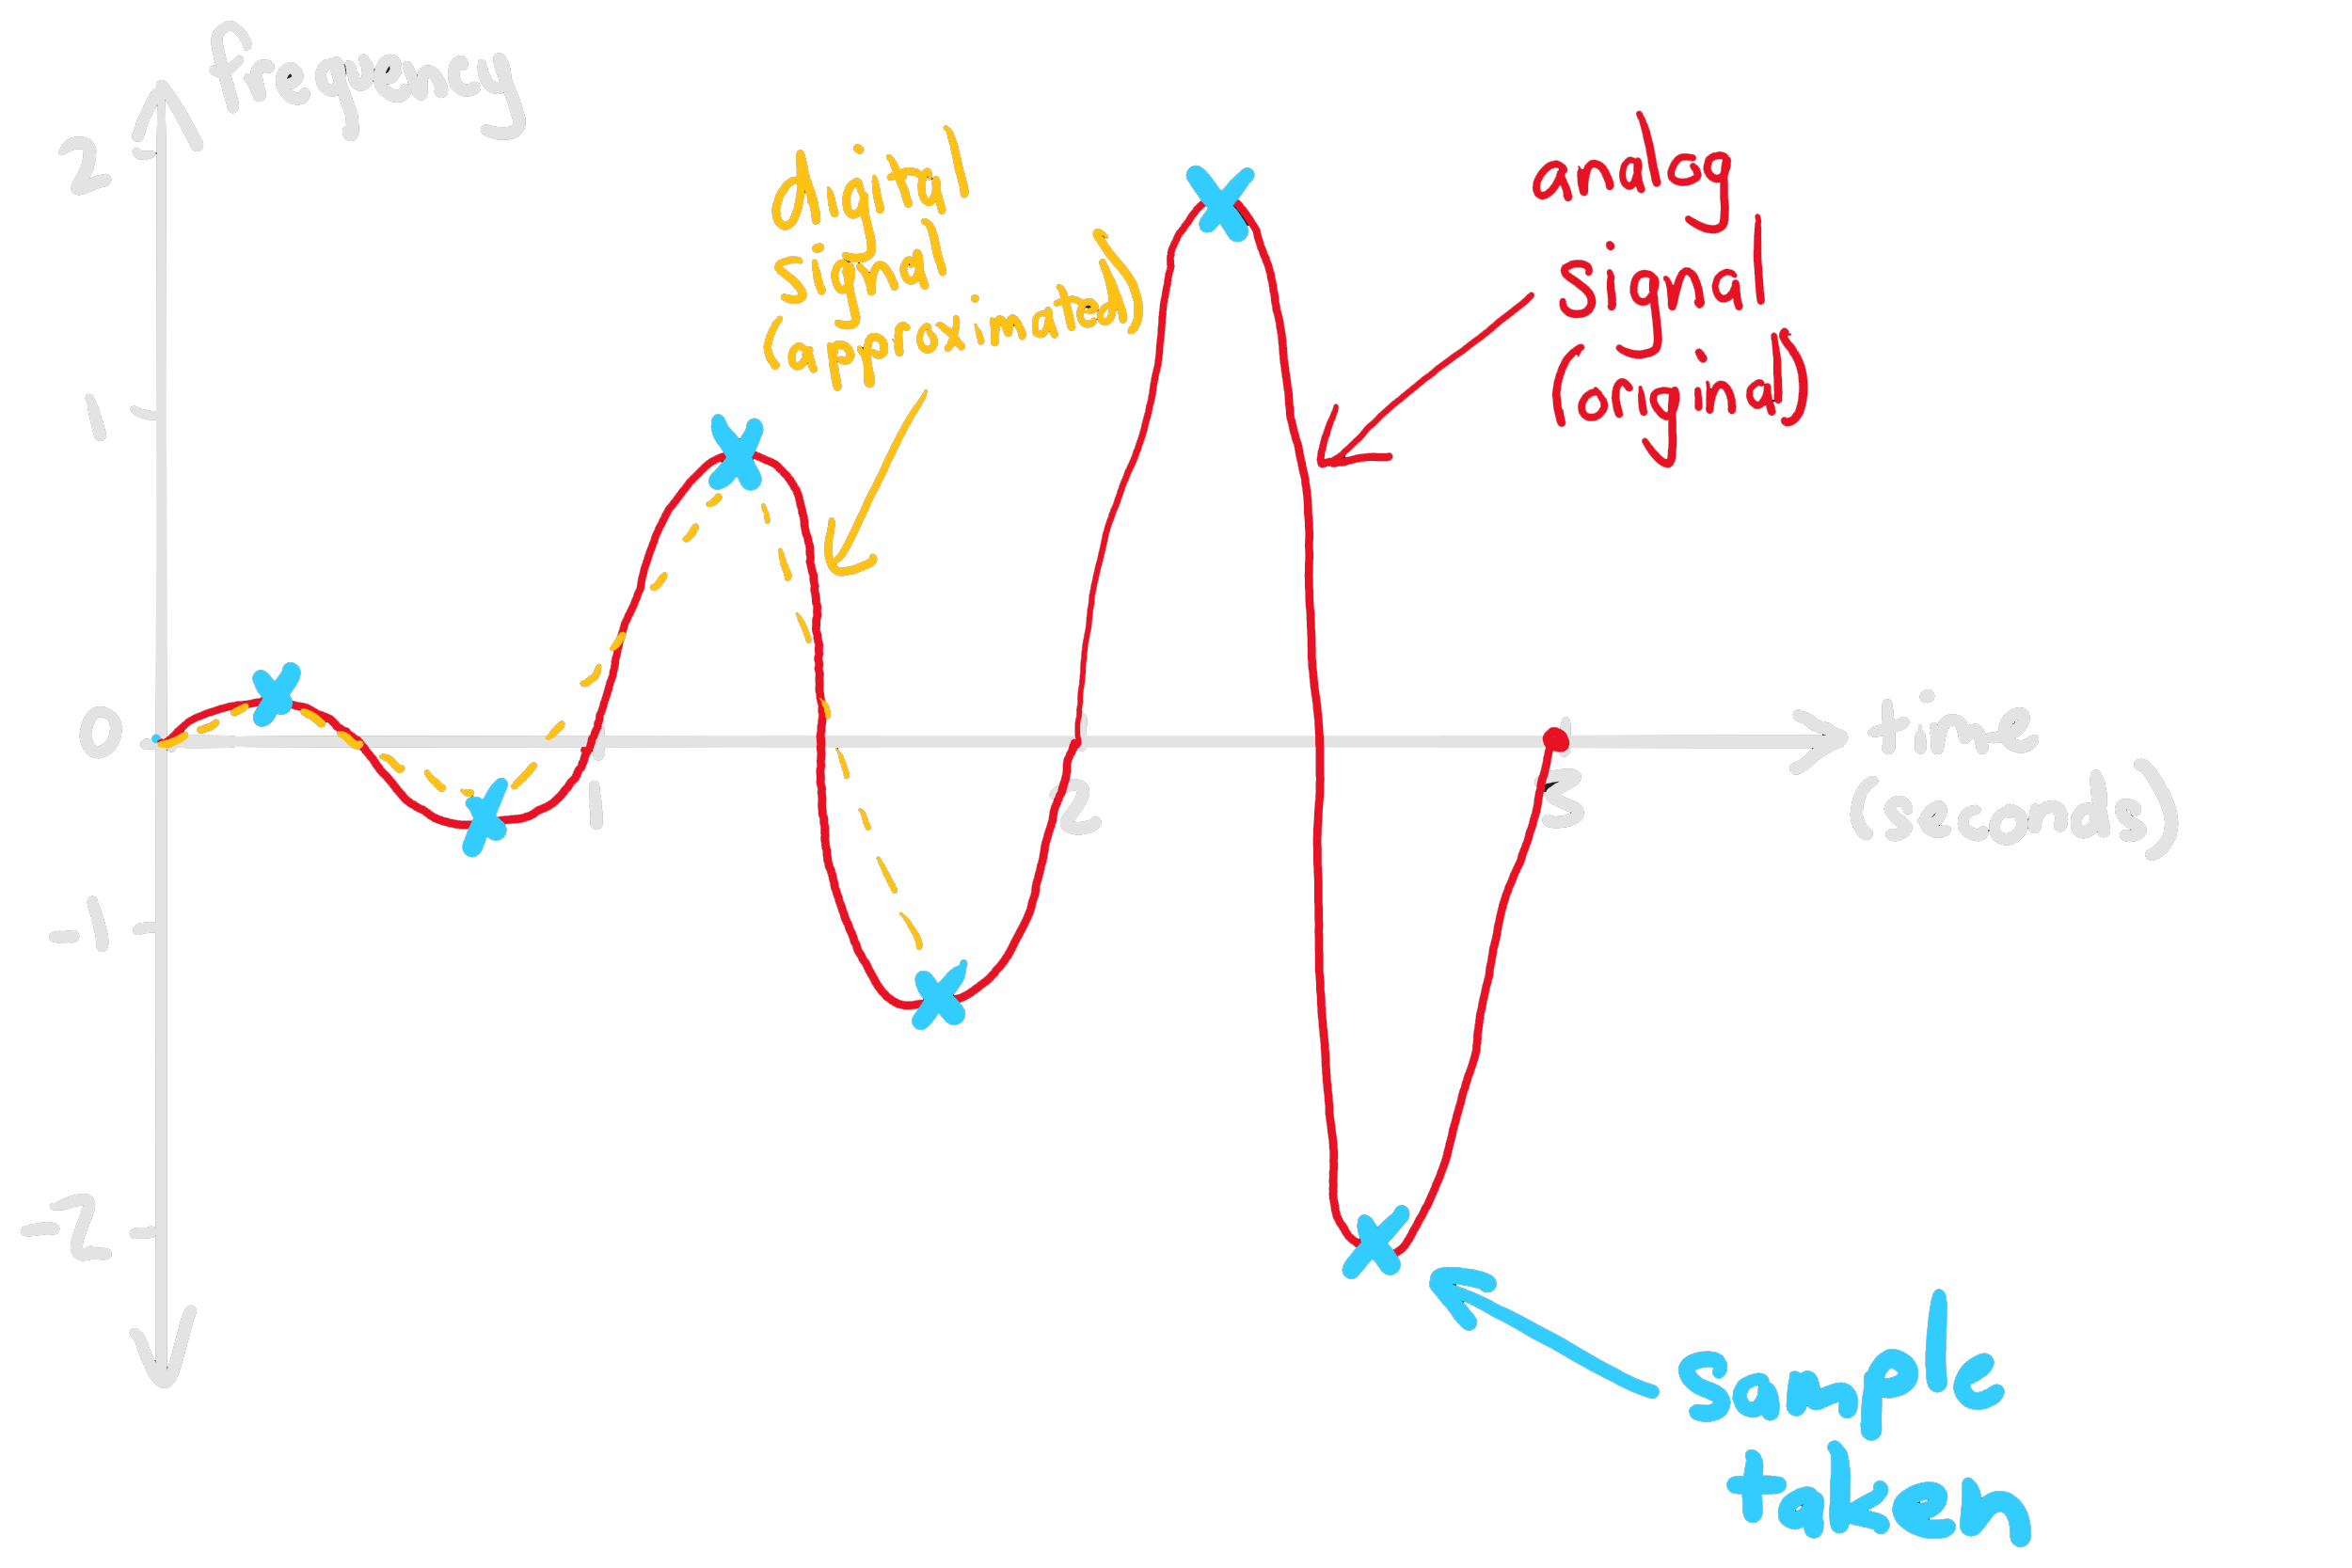 frequency
2
1
0
-1
-2
digital
signal
(approximated)
analog
signal
(original)
1
2
3
time
(seconds)
sample
taken